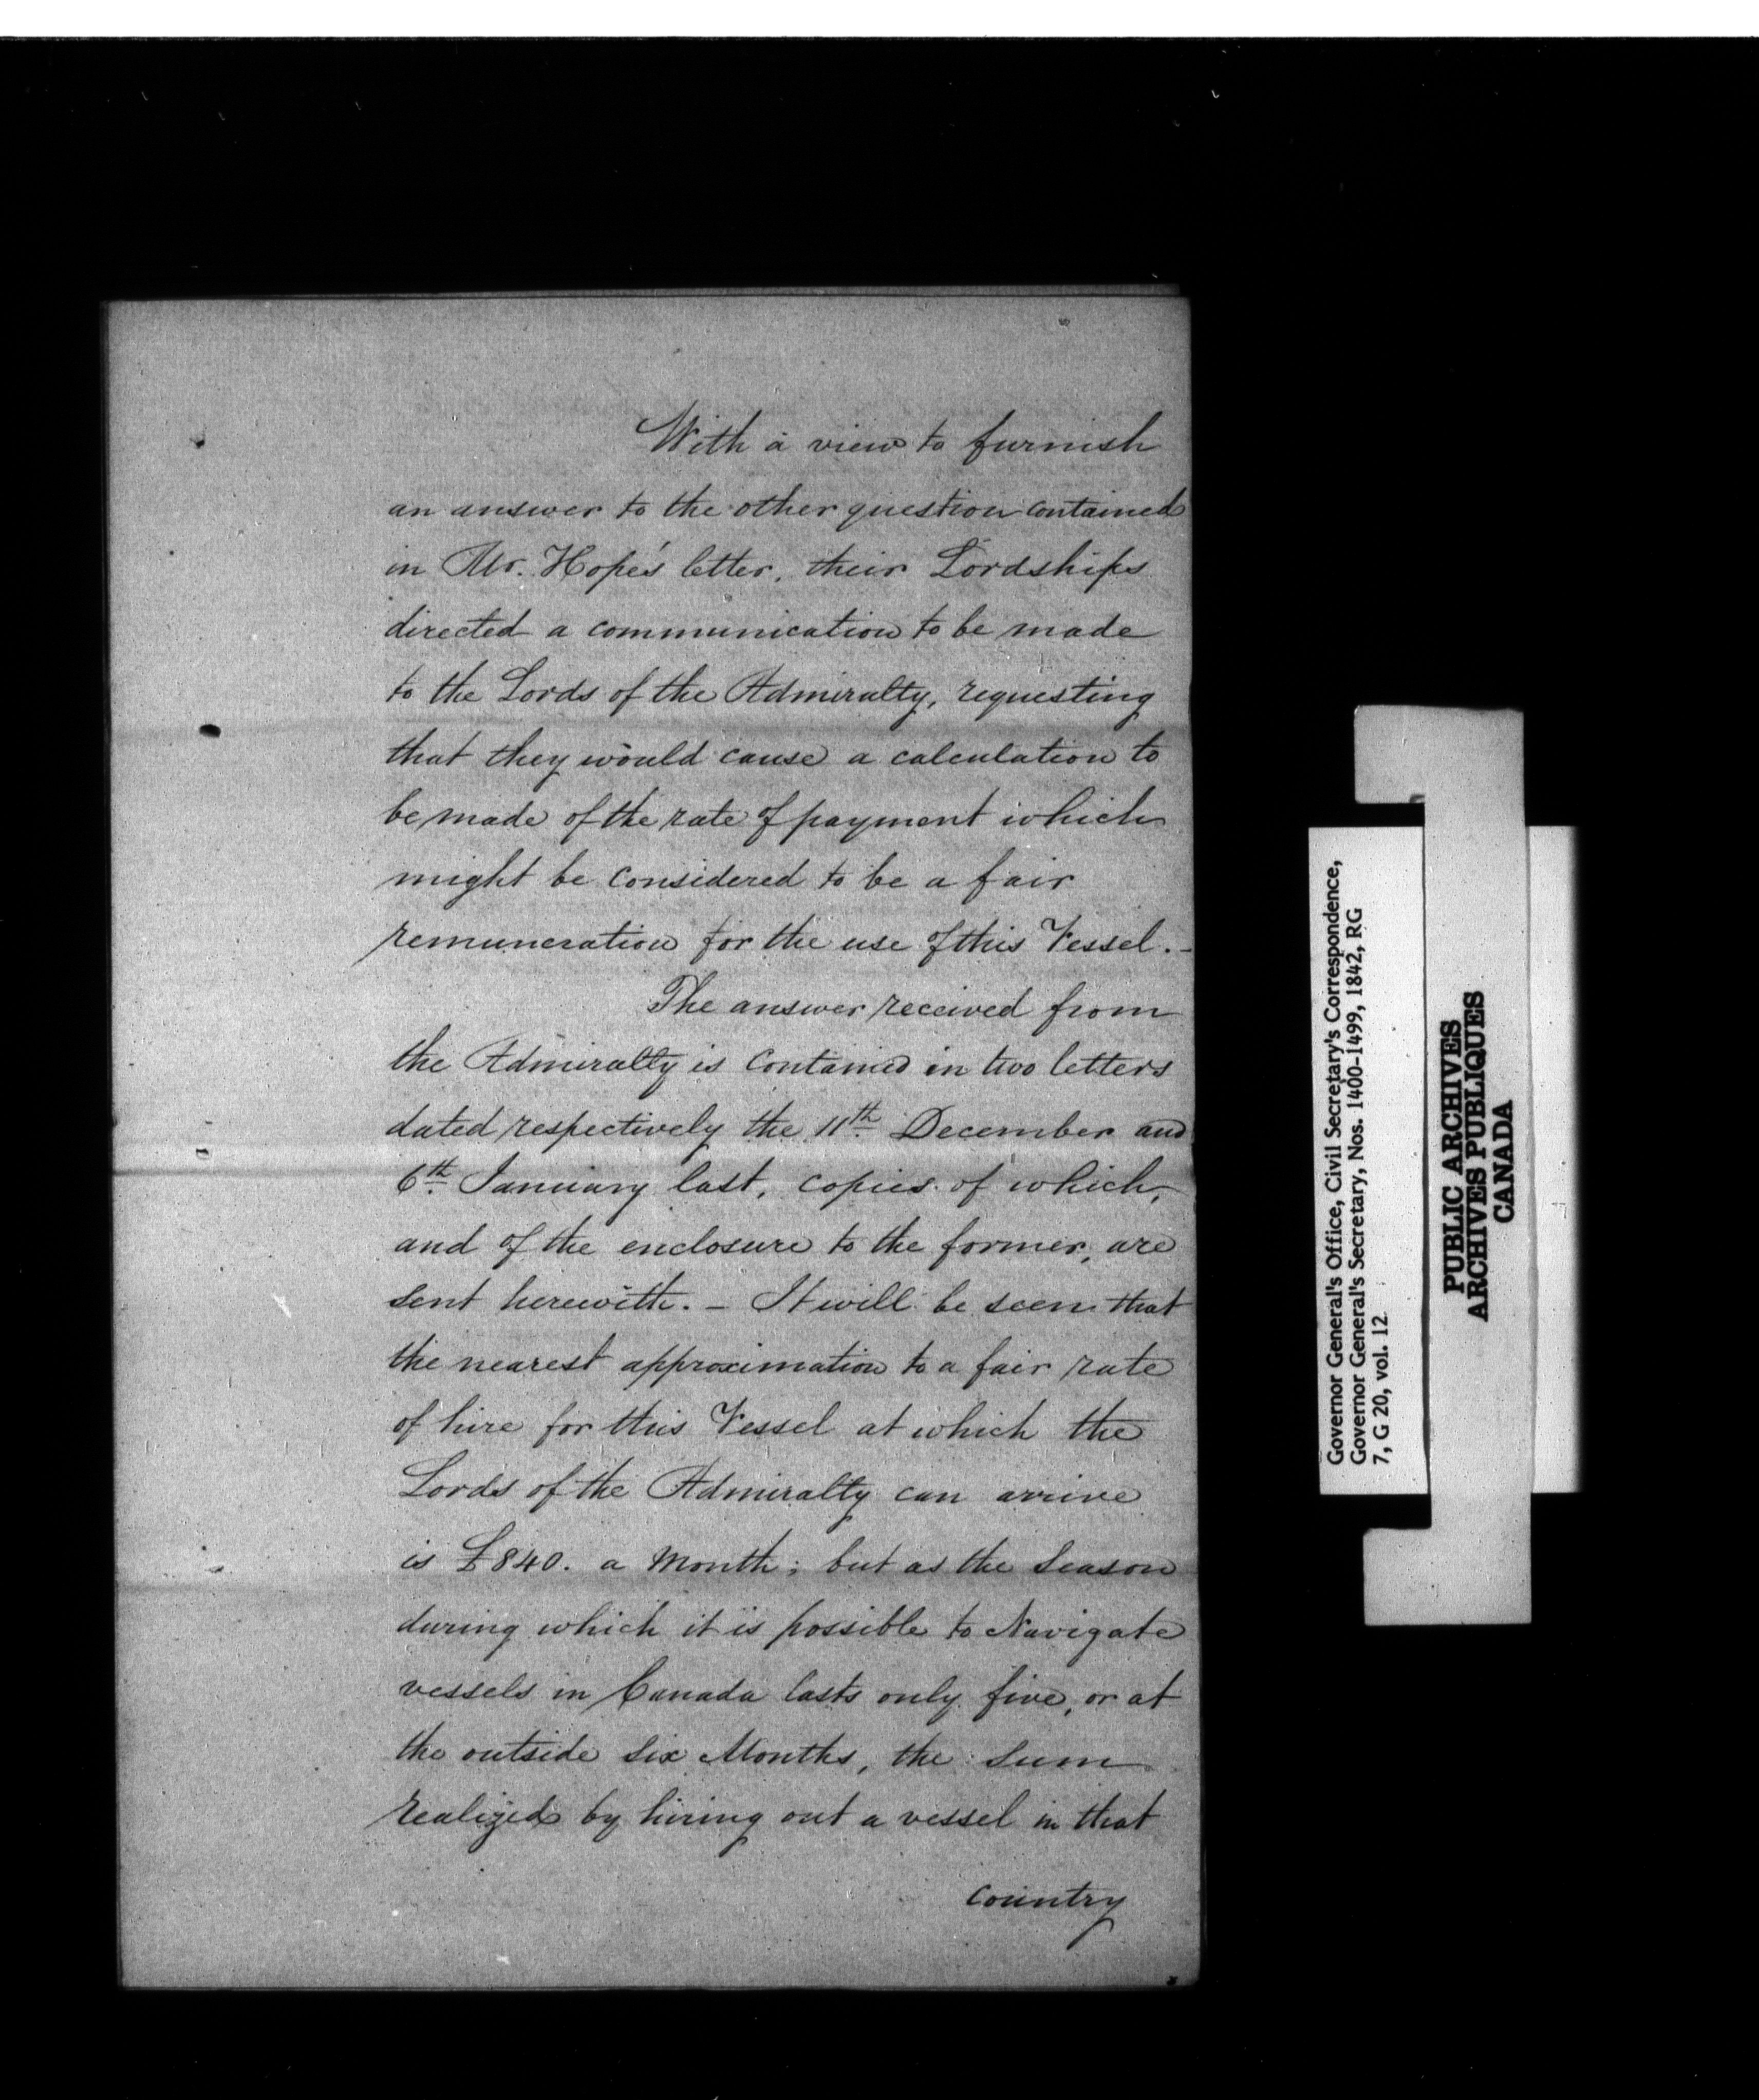 With a view to furnish
an answer to the other question contained
in Mr. Hope's letter, their Lordships
directed a communication to be made
to the Lords of the Admiralty, requesting
that they would cause a calculation to
be made of the rate of payment which
might be considered to be a fair
remuneration for the use of this Vessel.-
The answer received from
the Admiralty is contained in two letters
dated respectively the 11th December and
6th January last, copies of which,
and of the enclosure to the former, are
sent herewith. - It will be seen that
the nearest approximation to a fair rate
of hire for this Vessel at which the
Lords of the Admiralty can arrive
is £840. a Month; but as the Season
during which it is possible to Navigate
vessels in Canada lasts only five, or at
the outside six Months, the sum
realized by hiring out a vessel in that
country
Governor General's Office, Civil Secretary's Correspondence,
Governor General's Secretary, Nos. 1400-1499, 1842, RG
7, G 20, vol. 12
PUBLIC ARCHIVES
ARCHIVES PUBLIQUES
CANADA